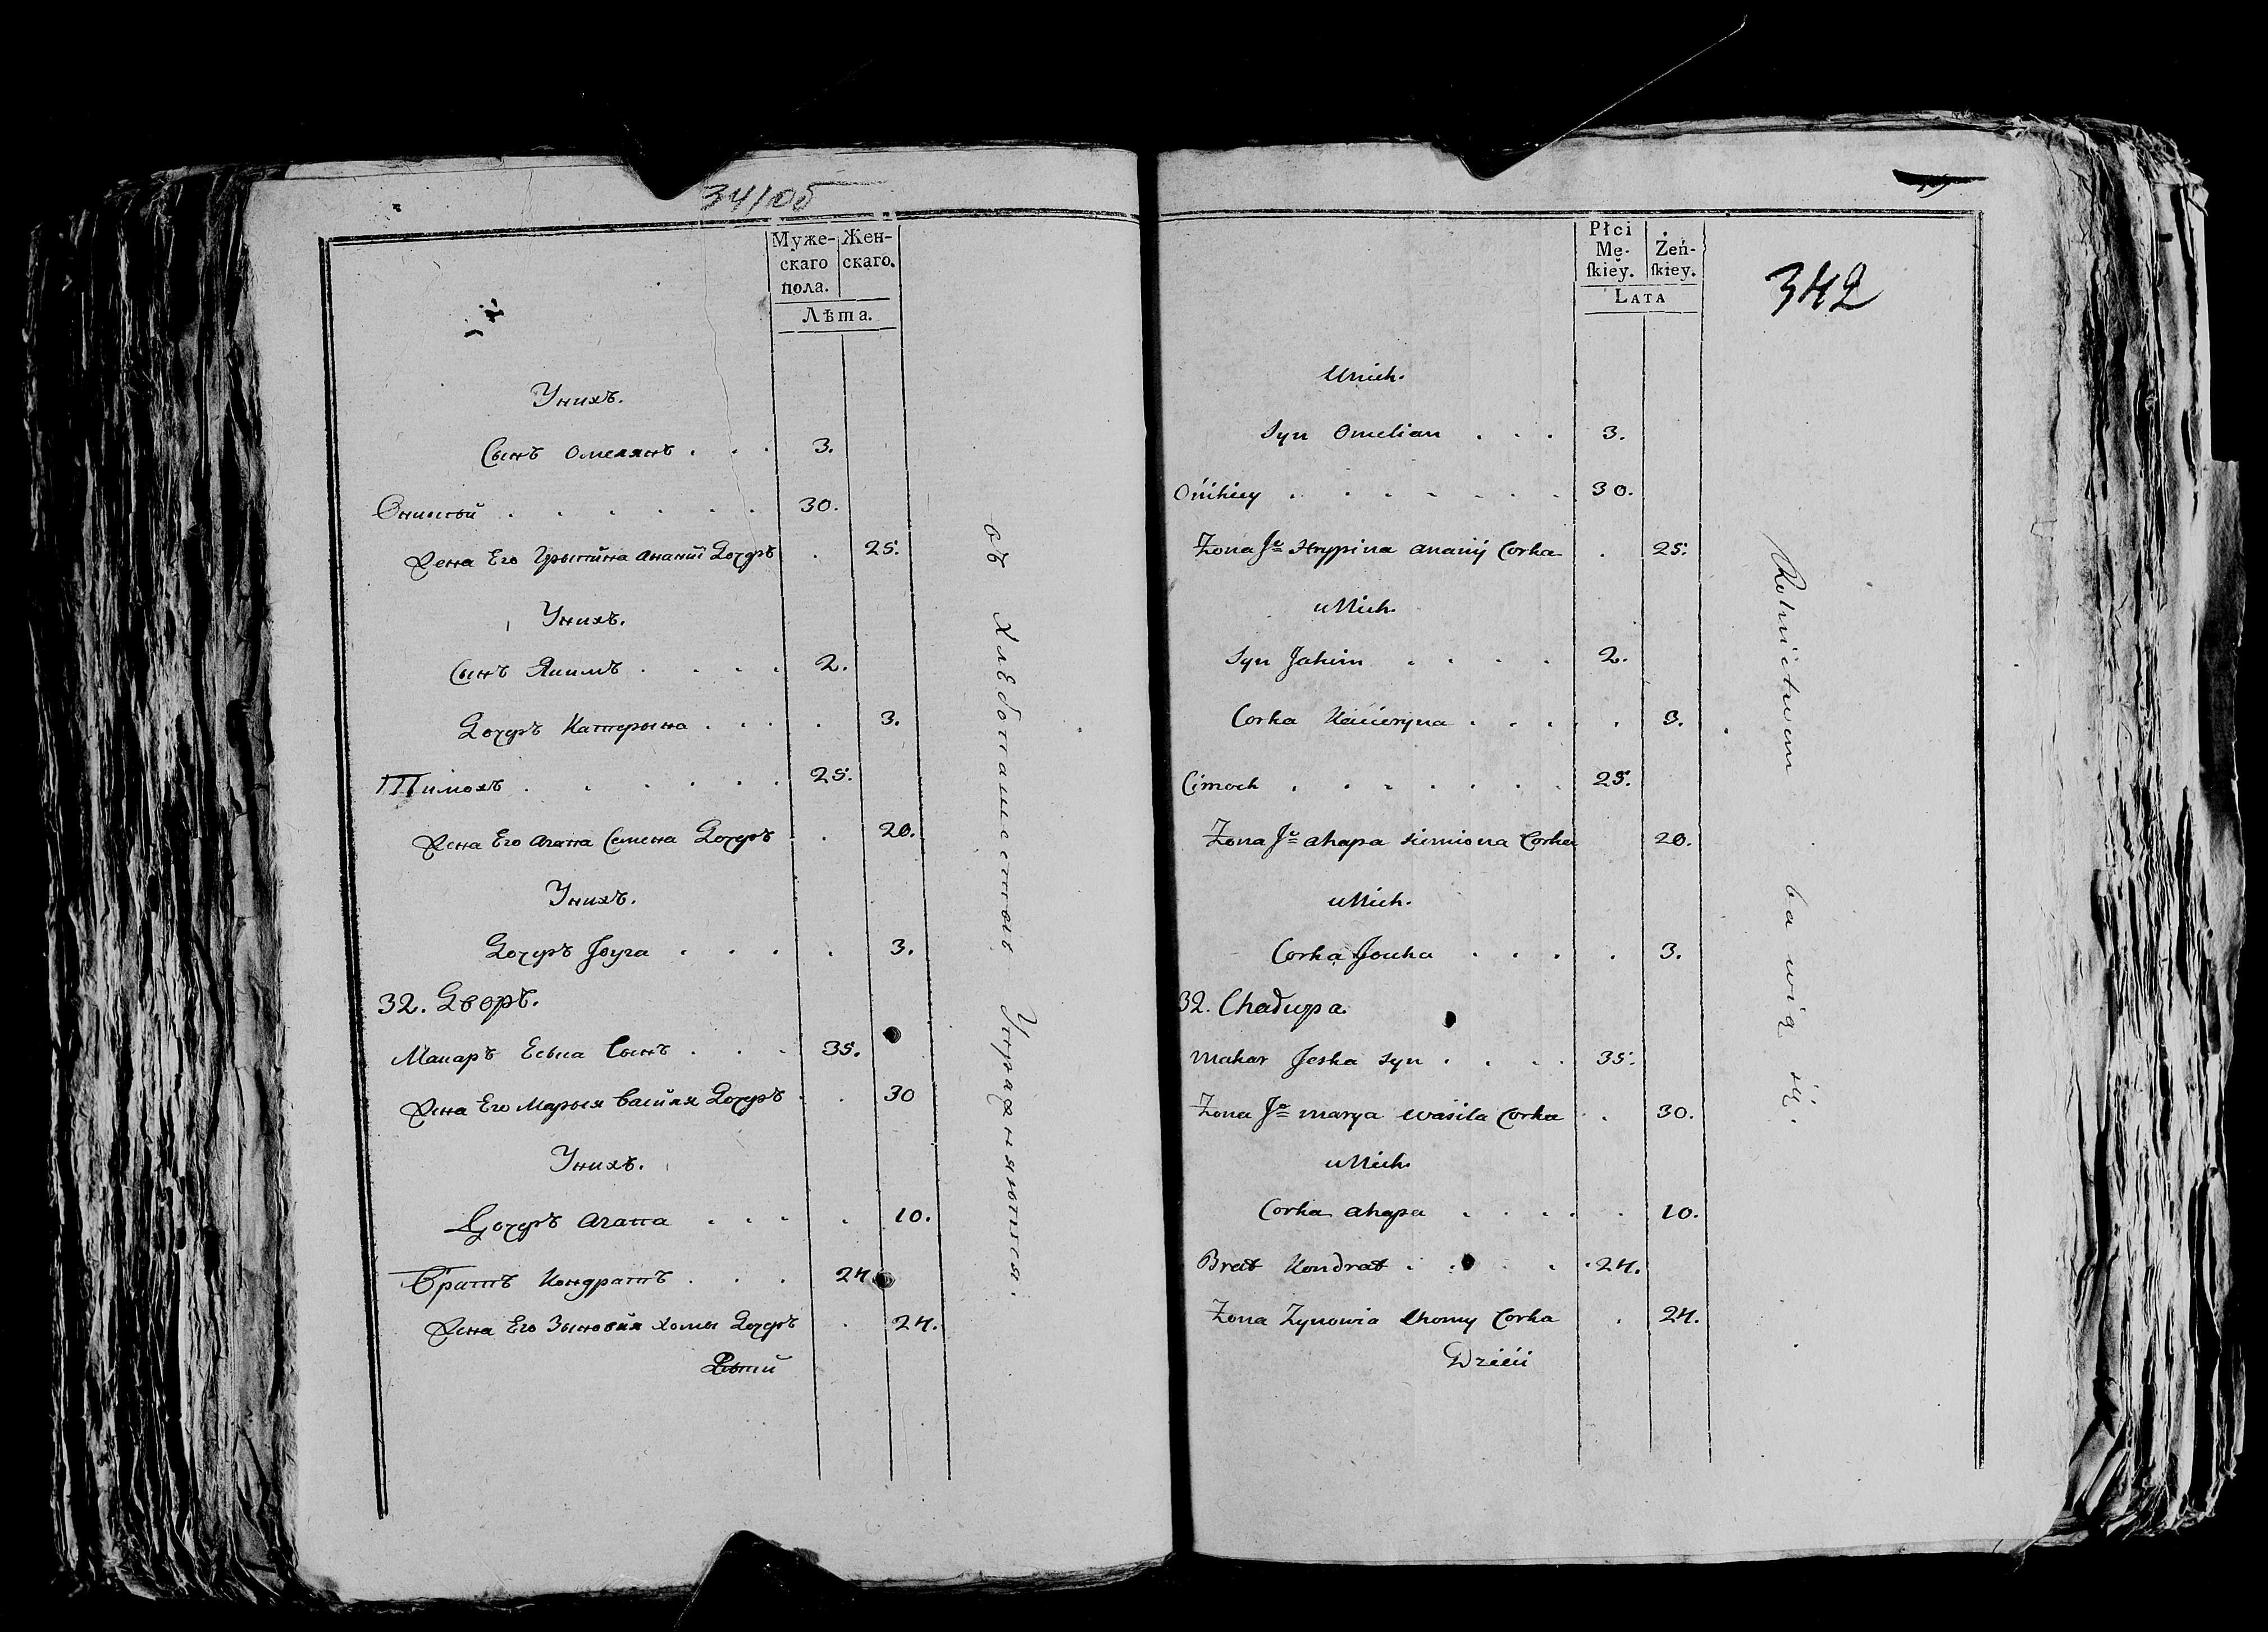 34/об
Муже-
скаго
пола.
Жен-
скаго.
Лѣта.
Унихъ.
Сынъ Омелянъ . . . 3.
Оникѣй . . . . . . 30.
Жена Его Грыпина Ананій Дочерь . 25.
Унихъ.
Сынъ Якимъ . . . . 2.
Дочерь Катерына . . . . 3.
Тимохъ . . . . . . 25.
Жена Его Агапа Семена Дочерь . . 20.
Унихъ.
Дочерь Јоуга . . . . 3.
32. Дворъ.
Макаръ Еська Сынъ . . . 35.
Жена Его Марыя Василя Дочерь . . 30
Унихъ.
Дочерь Агапа . . . . 10.
Братъ Кондратъ . . . 24
Жена Его Зыновия Хомы Дочерь . 24.
Дѣти
Хлѣбопашествомъ Упражняются.
342
Płci
Mę-
ſkiey.
Żeń-
ſkiey.
LATA
U nich.
Syn Omelian . . . 3.
Onikiey . . . . . . . 30.
Zona Je Hrypina Ananij Corka . 25.
u Nich.
Syn Jakim . . . . 2.
Corka Kacieryna . . . . . 3.
Cimoch . . . . . . . 25.
Zona Je Ahapa Siemiona Corka 20.
u Nich.
Corka Jouha . . . . 3.
32. Chałupa.
Makar Jeska Syn . . . . 35.
Zona Jo Marya Wasila Corka . . 30.
u Nich.
Corka Ahapa . . . . . 10.
Brat Kondrat . . . . . 24.
Zona Zynowia Chomy Corka . 24.
Dzieci
Rolnictwem bawią się.